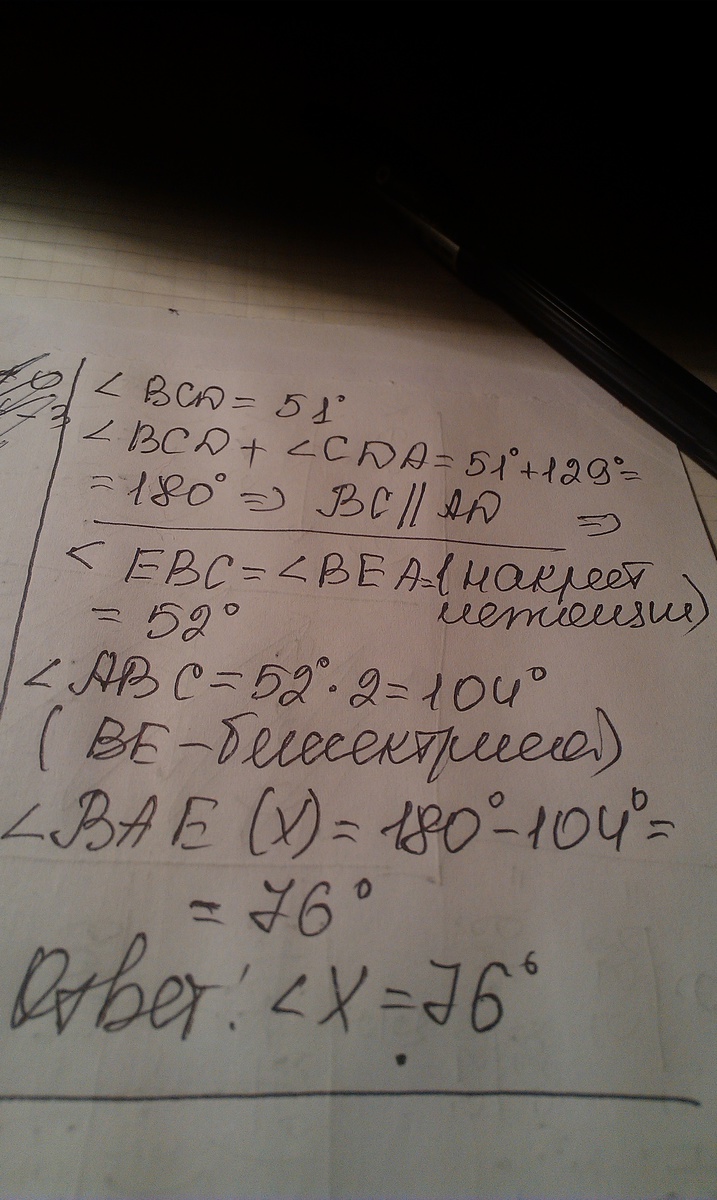 ∠ BCD = 51°
∠ BCD + ∠CDA = 51° + 129° =
= 180° ⇒ BC ∥ AD ⇒
∠ EBC = ∠BEA = (накрест
= 52° лежащи)
∠ABC = 52° · 2 = 104°
( BE – биссектриса)
∠BAE (X) = 180° – 104° =
= 76°
Ответ: ∠X = 76°